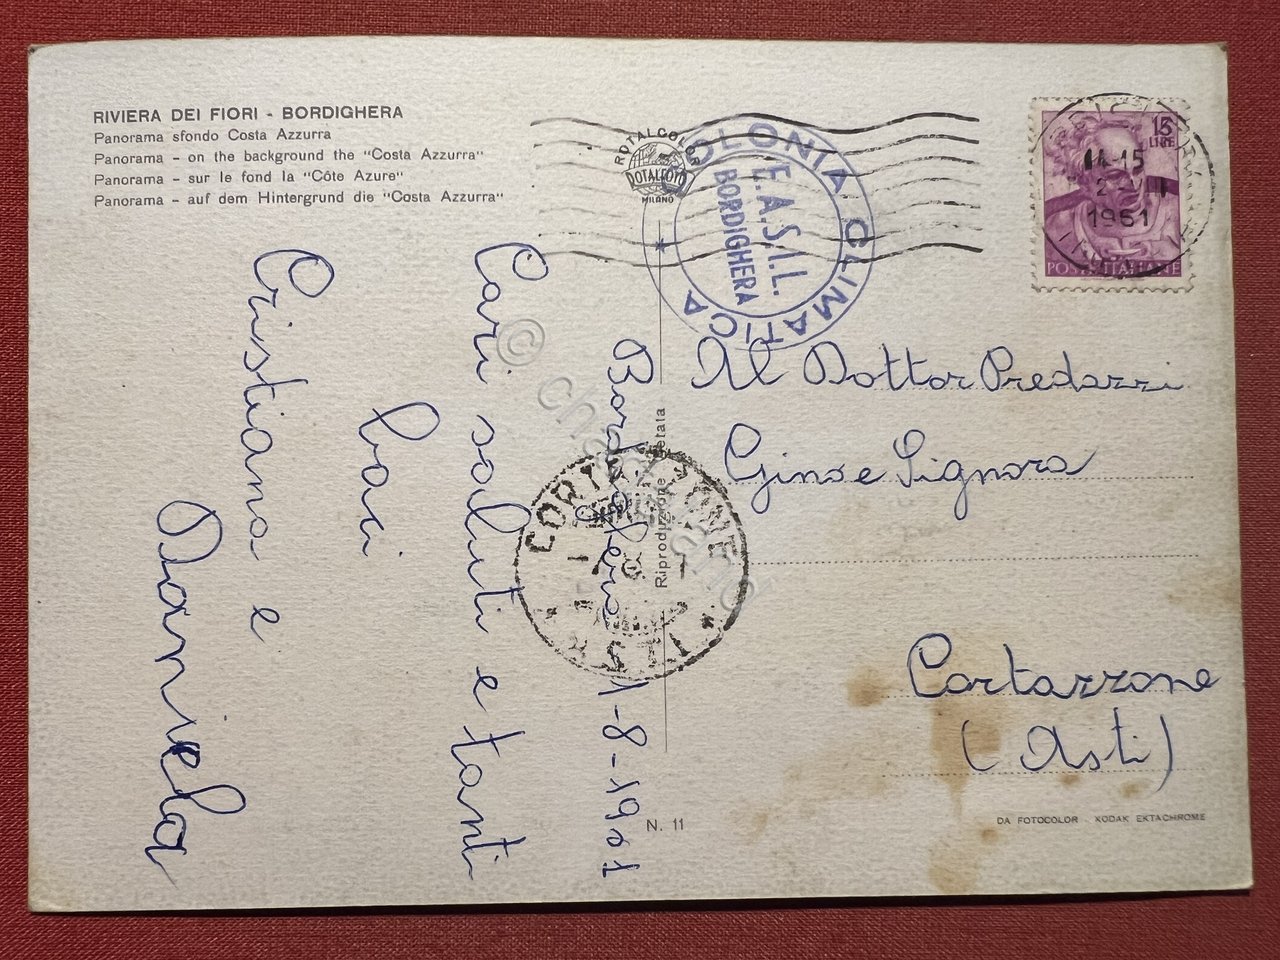 RIVIERA DEI FIORI - BORDIGHERA
Panorama sfondo Costa Azzurra
Panorama - on the background the "Costa Azzurra"
Panorama - sur le fond la "Côte Azure"
Panorama - auf dem Hintergrund die "Costa Azzurra"
ROTALCOLOR
ROTALFOTO
MILANO
COLONIA CLIMATICA
E.A.S.I.L.
BORDIGHERA
15
LIRE
POSTE ITALIANE
14-15
1961
Bordighera 1-8-1961
Cari saluti e tanti
baci
Cristiana e
Daniela
Al Dottor Predazzi
Gino e Signora
Cortazzone
(Asti)
CORTAZZONE
Riprodizione vietata
N. 11
DA FOTOCOLOR - KODAK EKTACHROME